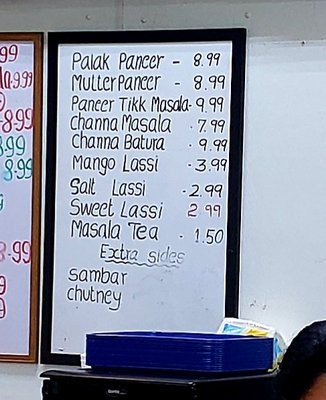 99
a-9.99
-8.99
8.99
8.99
8.99
Palak Paneer - 8.99
Mutter Paneer - 8.99
Paneer Tikk Masala - 9.99
Channa Masala - 7.99
Channa Batura - 9.99
Mango Lassi - 3.99
Salt Lassi - 2.99
Sweet Lassi 2.99
Masala Tea - 1.50
Extra sides
sambar
chutney